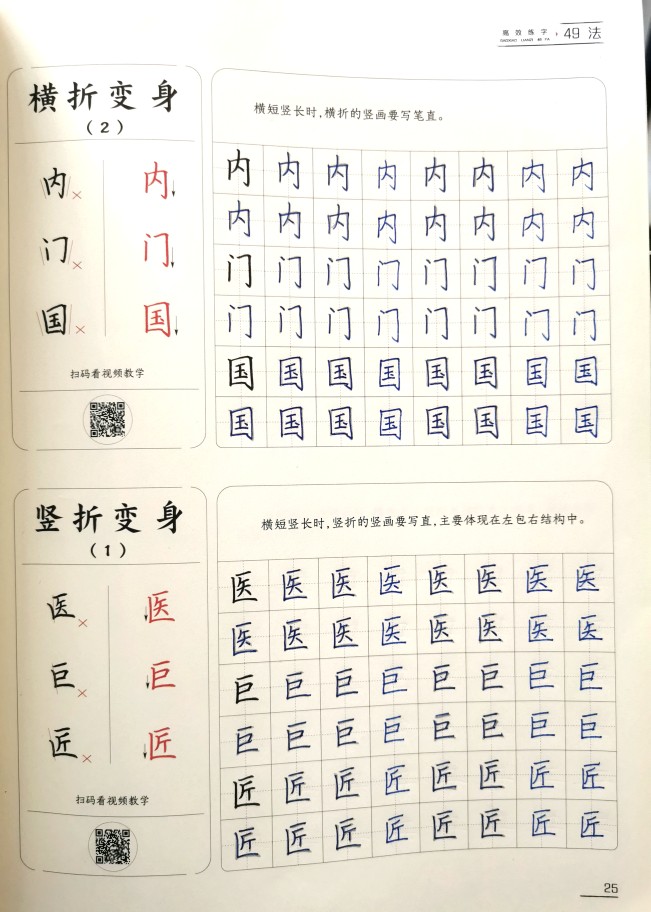 高效练字 49法
横折变身
（2）
内× 内
门× 门
国× 国
扫码看视频教学
横短竖长时，横折的竖画要写笔直。
内内内内内内内内
内内内内内内内内
门门门门门门门门
门门门门门门门门
国国国国国国国国
国国国国国国国国
竖折变身
（1）
医× 医
巨× 巨
匠× 匠
扫码看视频教学
横短竖长时，竖折的竖画要写直，主要体现在左包右结构中。
医医医医医医医医
医医医医医医医医
巨巨巨巨巨巨巨巨
巨巨巨巨巨巨巨巨
匠匠匠匠匠匠匠匠
匠匠匠匠匠匠匠匠
25